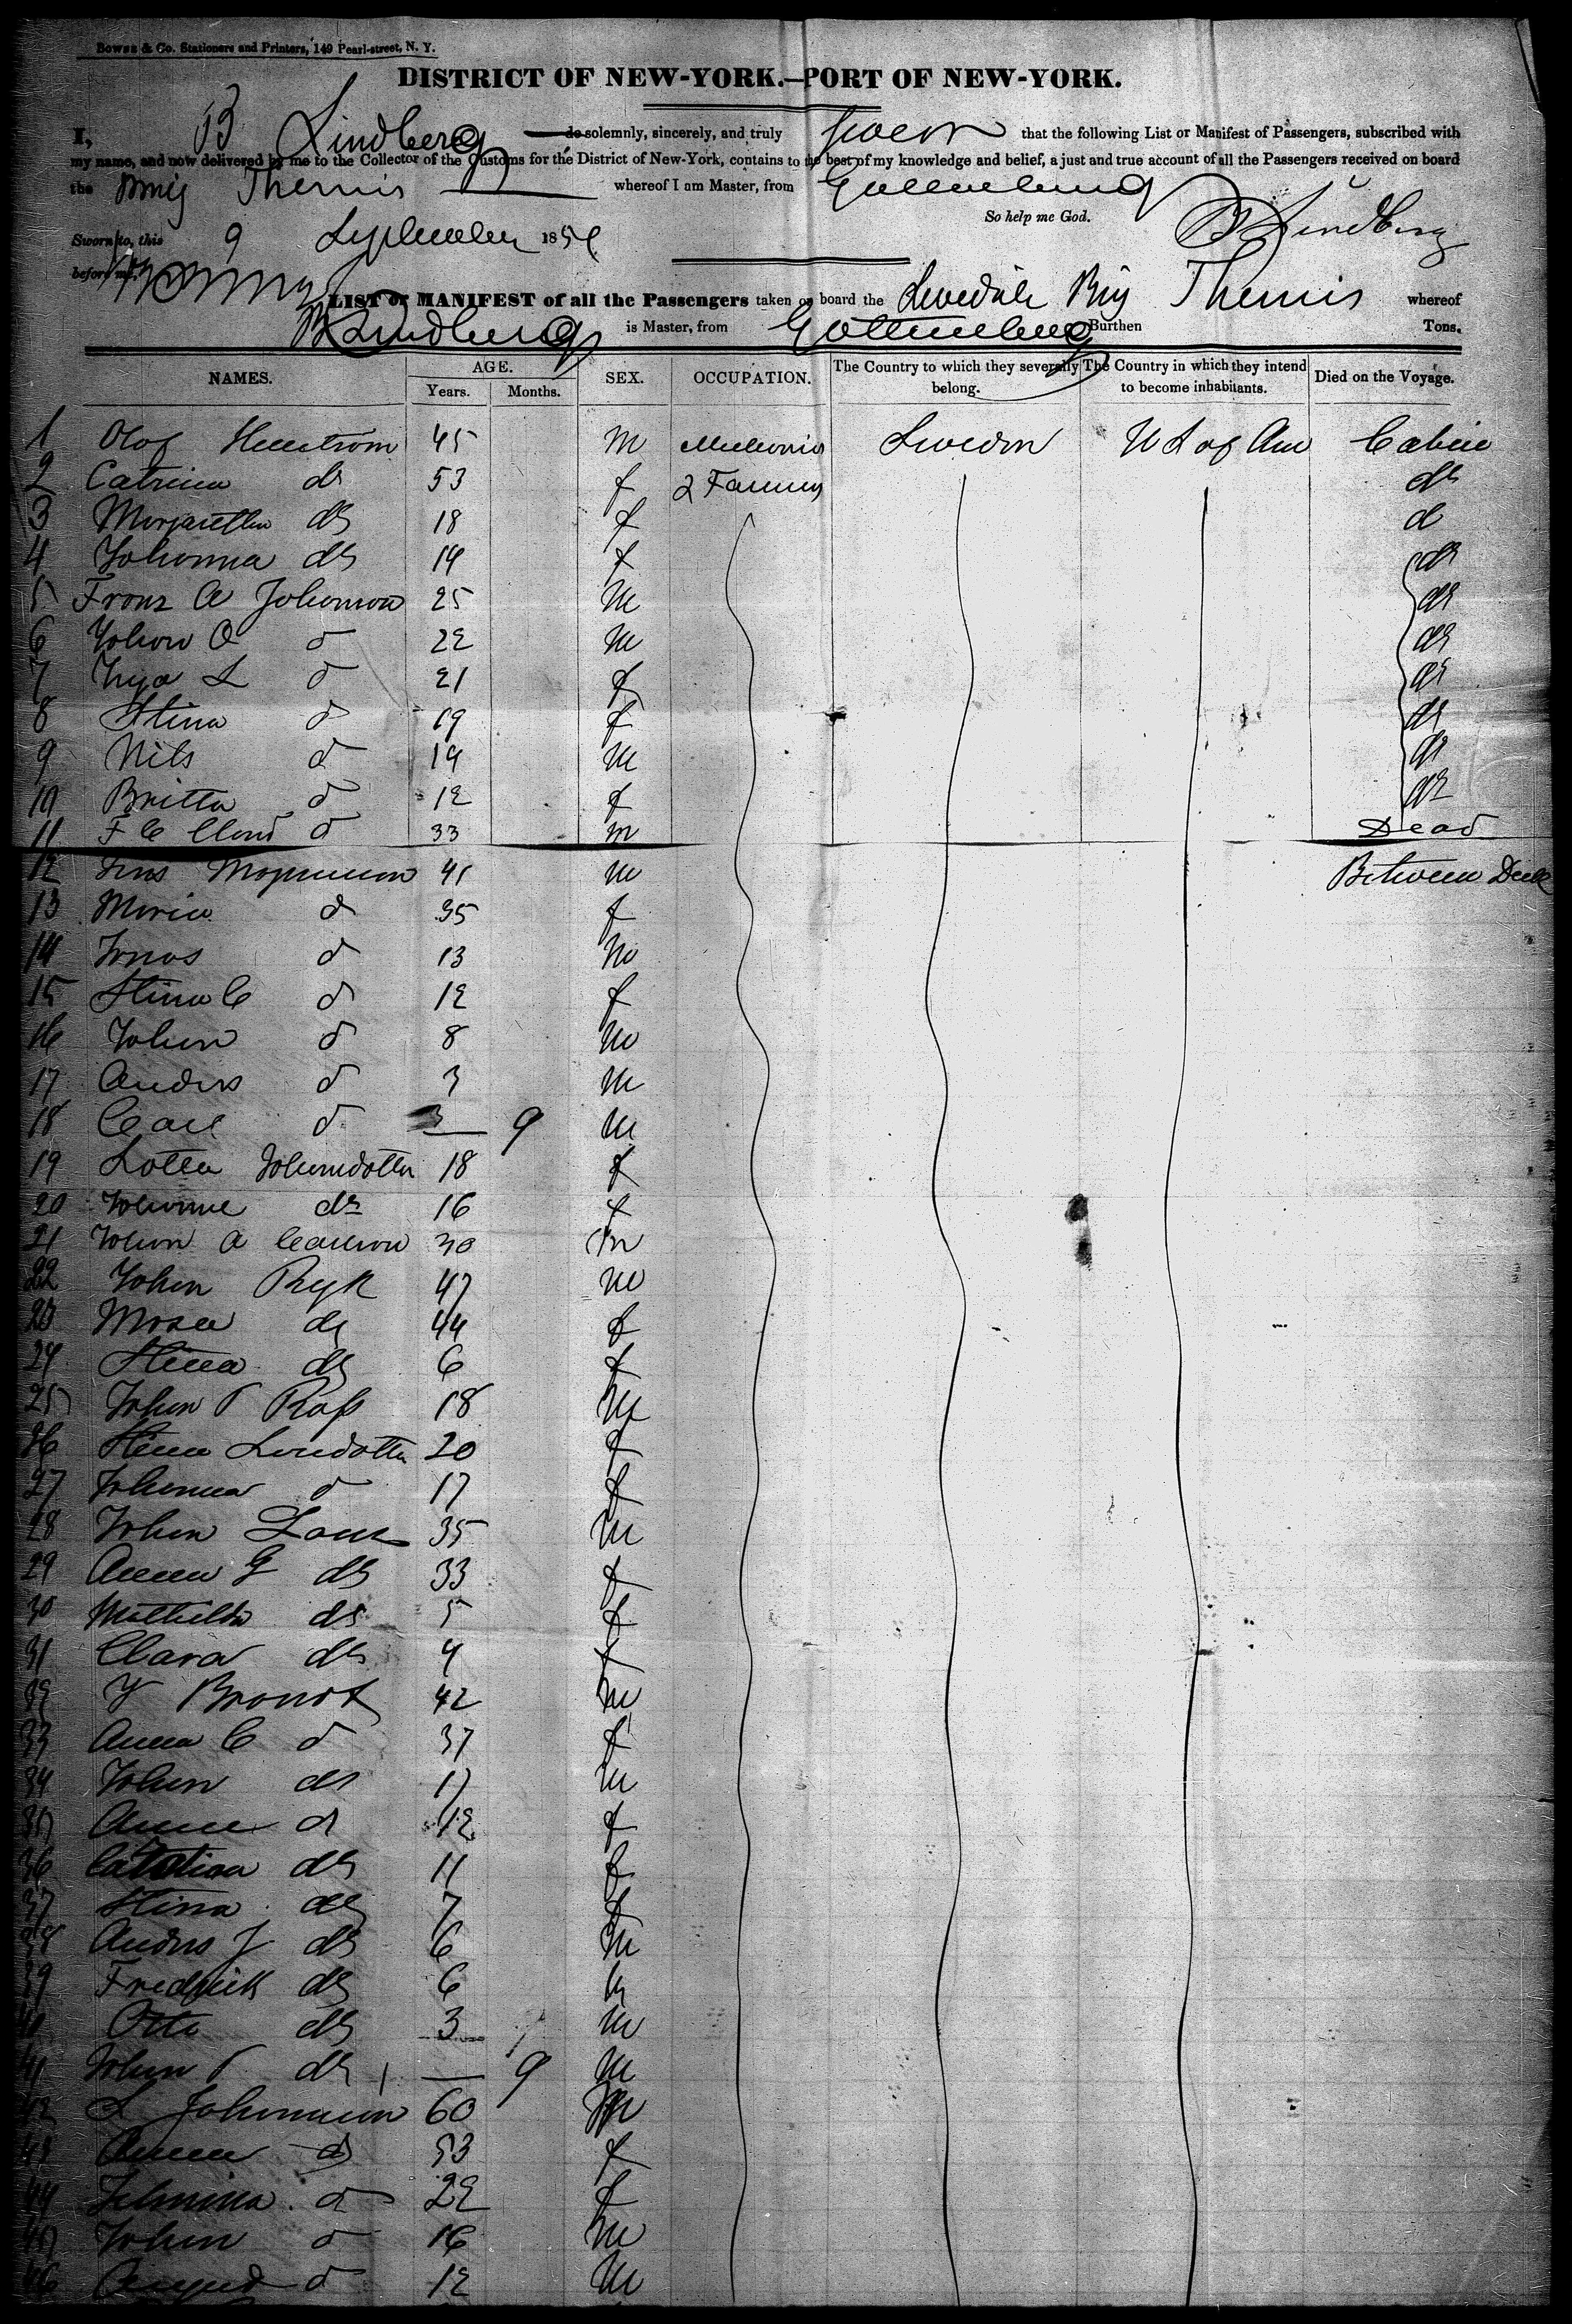 Bowne & Co. Stationers and Printers, 149 Pearl-street, N. Y.
DISTRICT OF NEW-YORK.—PORT OF NEW-YORK.
I, B Lindberg do solemnly, sincerely, and truly swear that the following List or Manifest of Passengers, subscribed with
my name, and now delivered by me to the Collector of the Customs for the District of New-York, contains to the best of my knowledge and belief, a just and true account of all the Passengers received on board
the Brig Themis whereof I am Master, from Gottenburg
So help me God. B Lindberg
Sworn to, this 9 September 1854
before me,
LIST or MANIFEST of all the Passengers taken on board the Swedish Brig Themis whereof
B Lindberg is Master, from Gottenburg Burthen Tons.
NAMES. AGE. Years. Months. SEX. OCCUPATION. The Country to which they severally belong. The Country in which they intend to become inhabitants. Died on the Voyage.
1 Olof 45 m Sweden U S of Am Cabin
2 Catrina do 53 f 2 Farmers do
3 Margaretha do 18 f d
4 Johanna do 14 f do
5 Franz A Johanson 25 m do
6 Johan O d 22 m do
7 L d 21 f do
8 Stina d 19 f do
9 Nils d 14 m do
10 Britta d 12 f do
11 F C d 33 m Dead
12 41 m Between Deck
13 Maria d 35 f
14 Jonas d 13 m
15 Stina C d 12 f
16 Johan d 8 m
17 Anders d 3 m
18 Carl d — 9 m
19 Lotta Johansdotter 18 f
20 Johanne do 16 f
21 Johan A Carlson 30 m
22 Johan Ryk 47 m
23 do 44 f
24 Stina do 6 f
25 Johan P 18 m
26 Stina 20 f
27 Johanna d 17 f
28 Johan 35 m
29 Anna G do 33 f
30 Mathilda do 5 f
31 Clara do 4 f
32 Brandt 42 m
33 Anna C d 37 f
34 Johan do 17 m
35 Anna d 12 f
36 do 11 f
37 Stina do 7 f
38 Anders J do 6 m
39 Fredrick do 6 m
40 Otto do 3 m
41 Johan P do — 9 m
42 L Johanson 60 m
43 Anna d 53 f
44 d 22 f
45 Johan d 16 m
46 August d 12 m